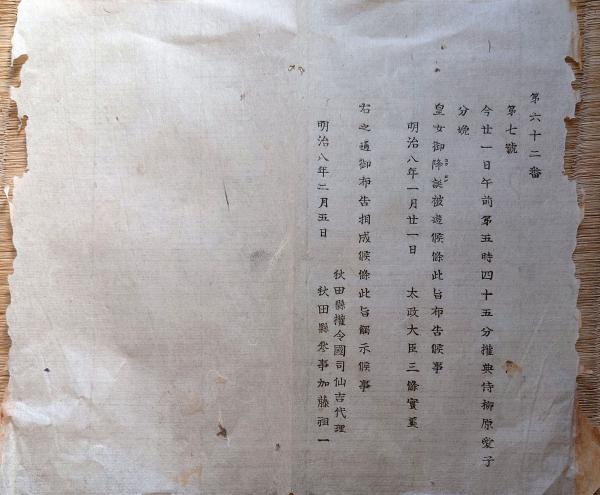 第六十二番
第七號
今廿一日午前第五時四十五分權典侍柳原愛子
分娩
皇女御降誕被遊候條此旨布告候事
明治八年一月廿一日 太政大臣三條實美
右之通御布告相成候條此旨觸示候事
明治八年二月五日
秋田縣權令國司仙吉代理
秋田縣參事加藤祖一